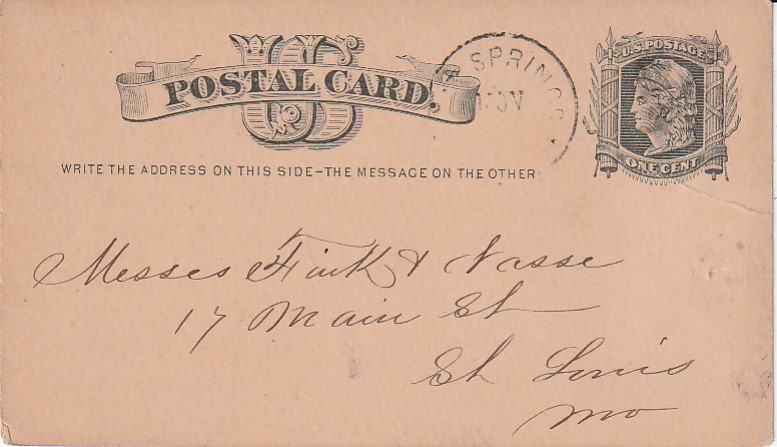 US
POSTAL CARD.
SPRINGS
NOV
U.S. POSTAGE
ONE CENT
WRITE THE ADDRESS ON THIS SIDE–THE MESSAGE ON THE OTHER
Messes Fink & Nasse
17 Main St
St Louis
Mo